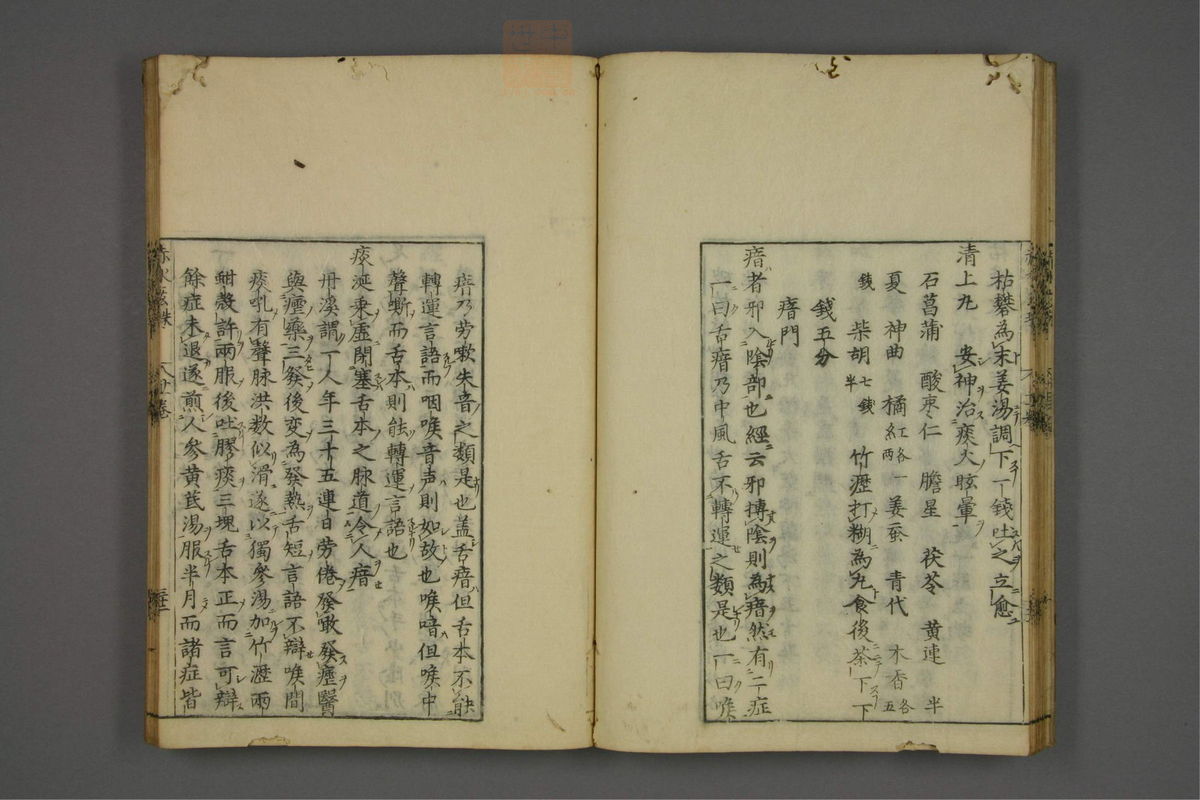 枯礬為末姜湯調下一錢吐之立愈
清上丸　安神治痰火眩暈
石菖蒲　酸棗仁　膽星　茯苓　黄連　半
夏　神曲　橘紅各一兩　姜蚕　青代　木香各五
錢　柴胡七錢半　竹瀝打糊為丸食後茶下下
錢五分
瘖門
瘖者邪入陰部也經云邪搏陰則為瘖然有二症
一曰舌瘖乃中風舌不轉運之類是也一曰喉
瘖乃劳嗽失音之類是也盖舌瘖但舌本不能
轉運言語而咽喉音声則如故也喉瘖但喉中
聲嘶而舌本則能轉運言語也
痰涎乘虛閉塞舌本之脉道令人瘖
丹溪謂一人年三十五連日劳倦發嗽發瘧醫
與瘧藥三發後変為發熱舌短言語不辯喉間
痰吼有聲脉洪数似滑遂以獨參湯加竹瀝兩
蚶殼許兩服後吐膠痰三塊舌本正而言可辯
餘症未退遂煎人參黄芪湯服半月而諸症皆
赤水玄珠